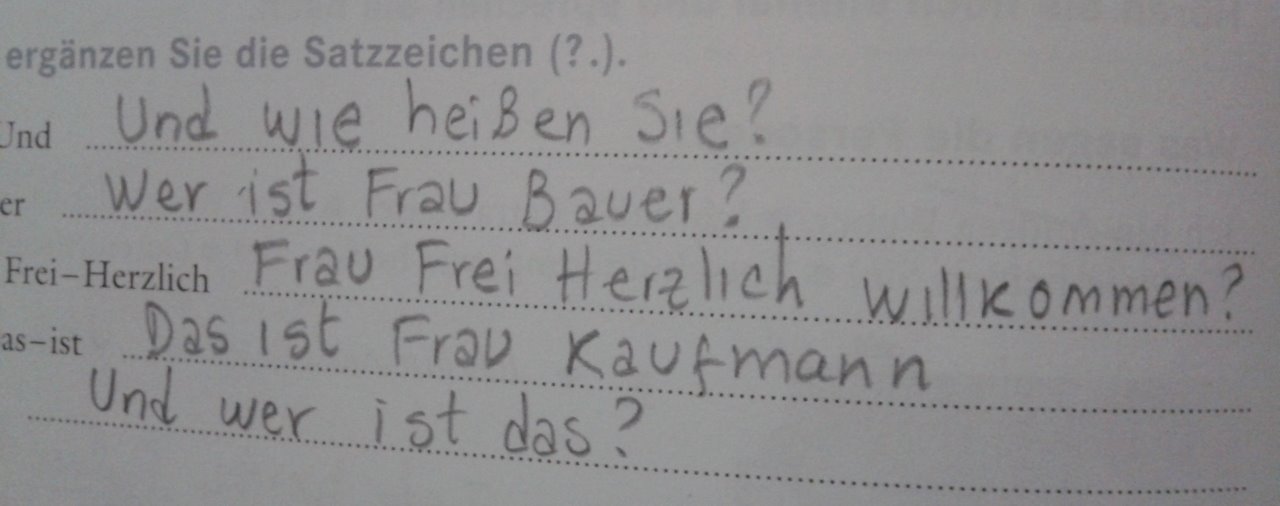 ergänzen Sie die Satzzeichen (?.).
Und Und wie heißen Sie?
er Wer ist Frau Bauer?
Frei–Herzlich Frau Frei Herzlich willkommen?
as–ist Das ist Frau Kaufmann
Und wer ist das?